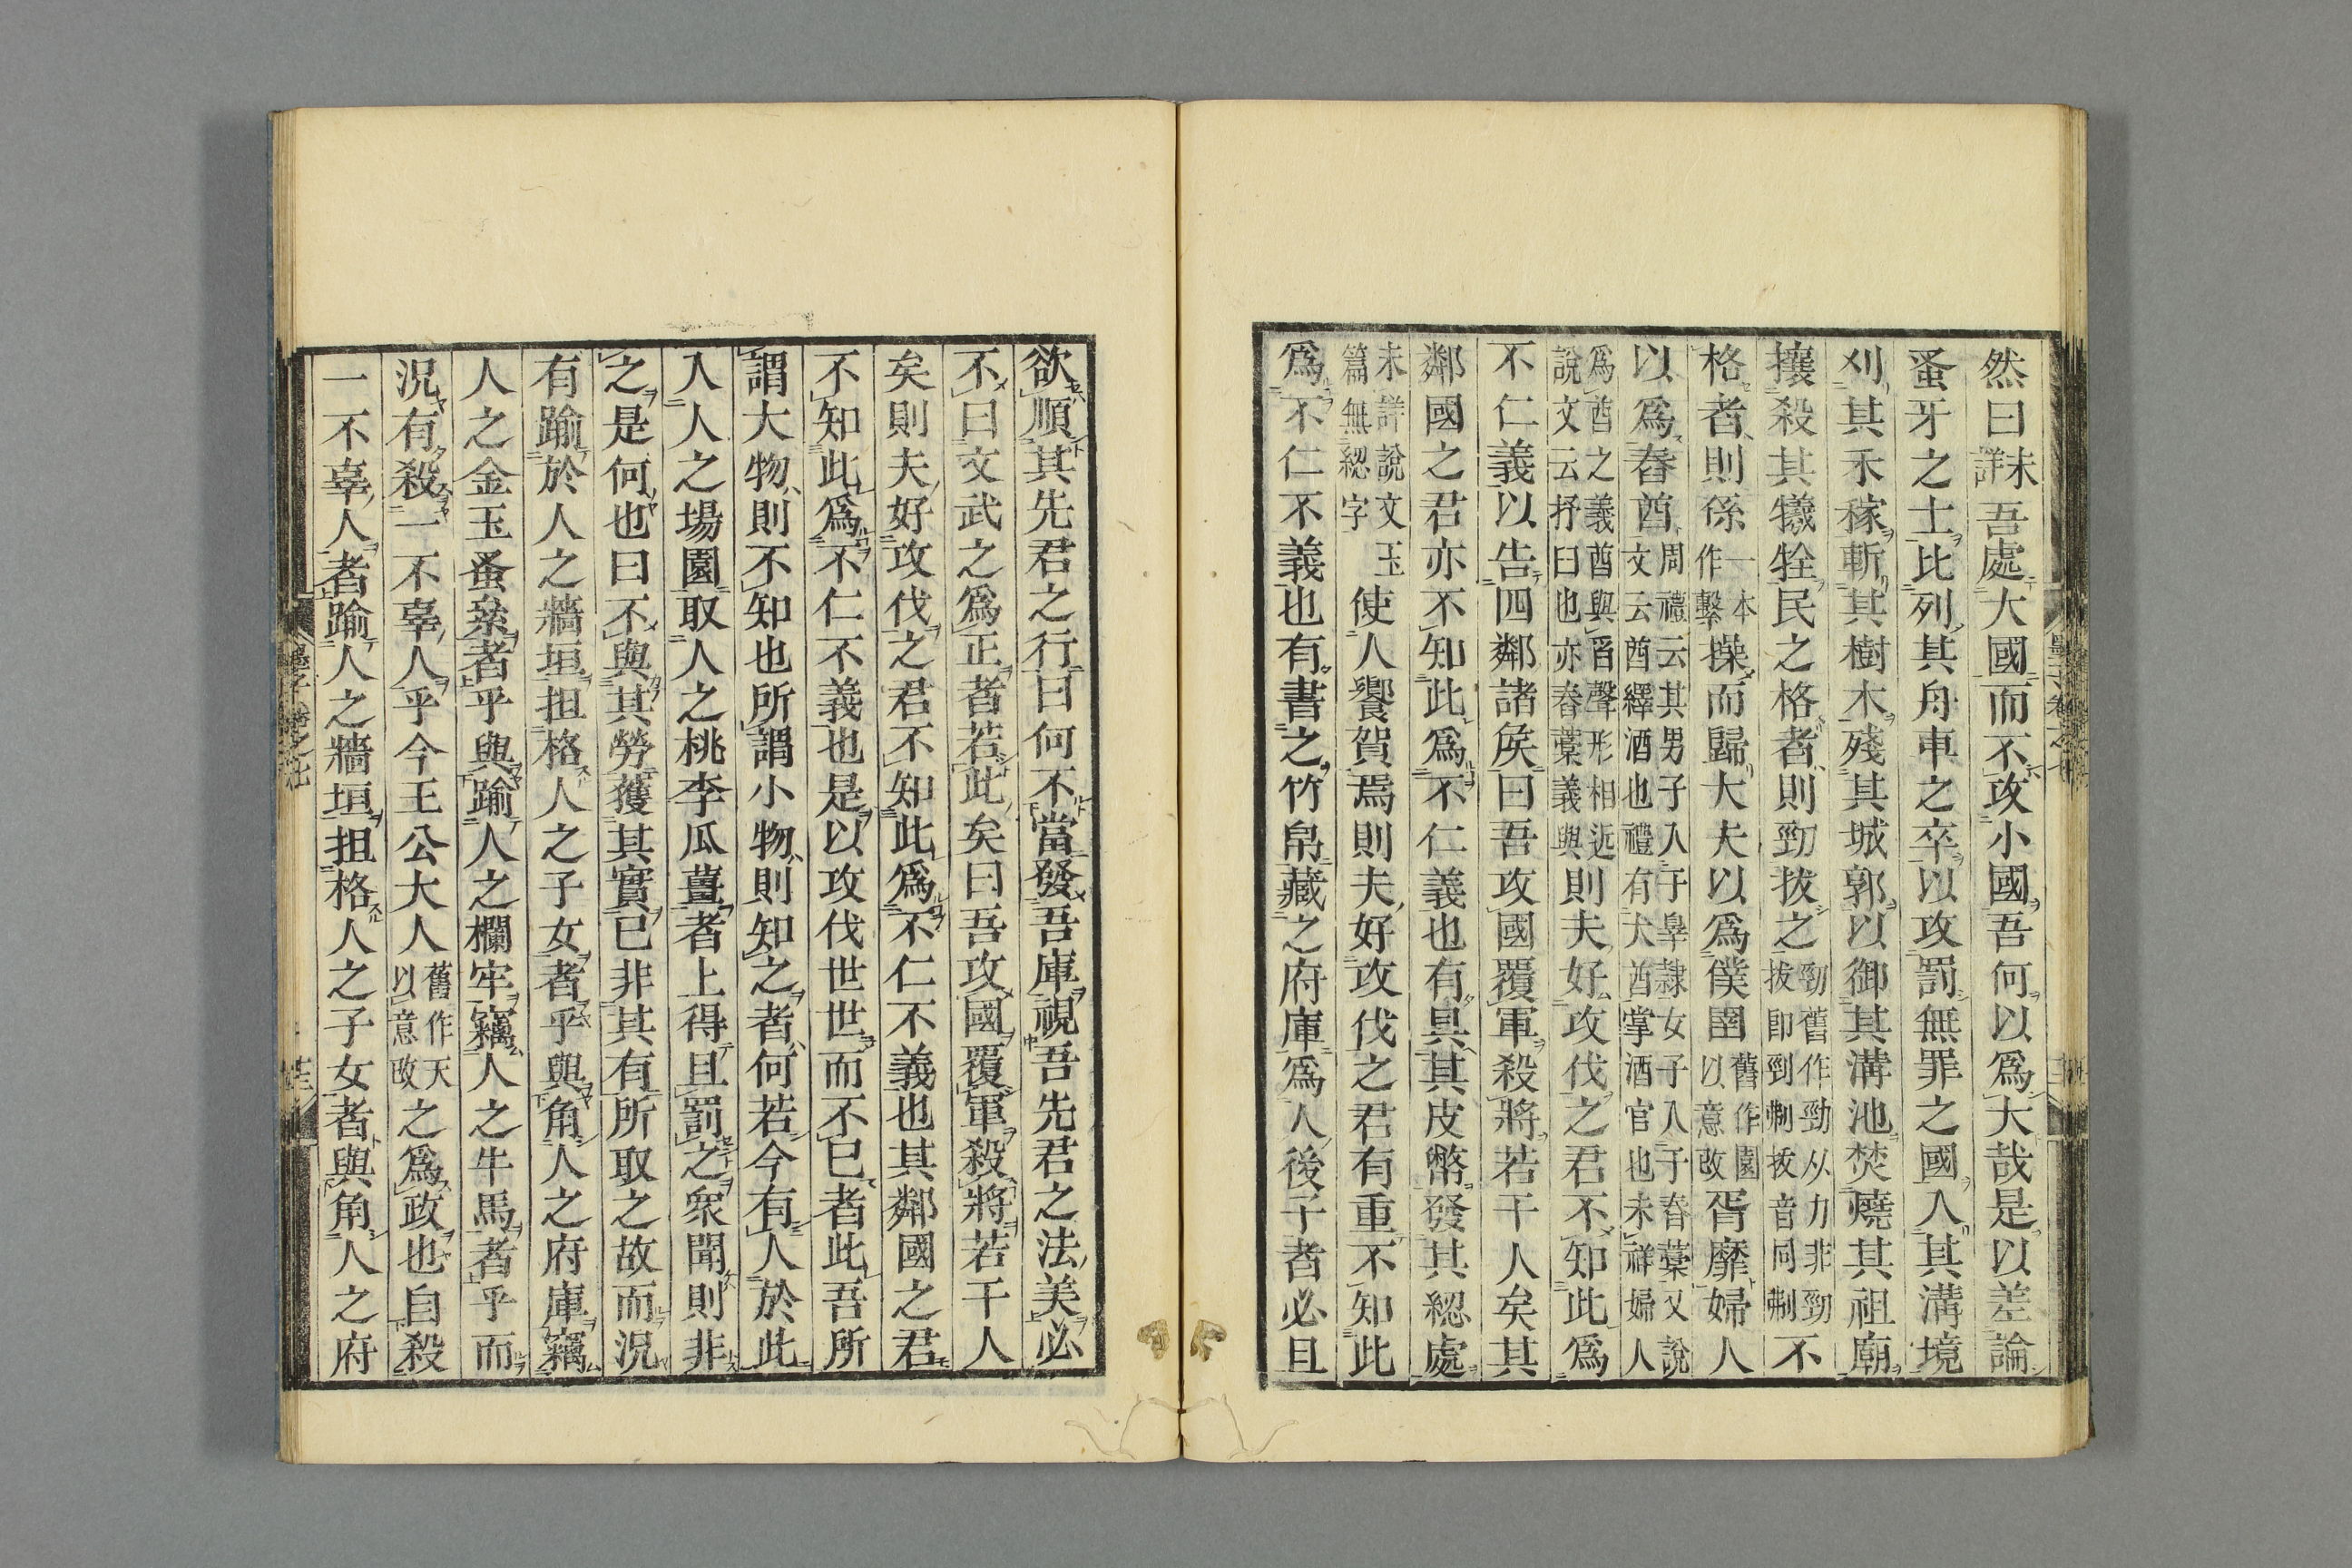 然曰未詳吾處大國而不攻小國吾何以爲大哉是以差論
蚤牙之士比列其舟車之卒以攻罰無罪之國入其溝境
刈其禾稼斬其樹木殘其城郭以御其溝池焚燒其祖廟
攘殺其犧牷民之格者則勁拔之勁舊作勁从力非勁拔即剄刜拔音同刜不
格者則係一本作繫操而歸大夫以爲僕圉舊作園以意改胥靡婦人
以爲舂酋周禮云其男子入于皋隸女子入于舂藁又說文云酋繹酒也禮有大酋掌酒官也未詳婦人
爲酋之義酋與舀聲形相近說文云抒臼也亦舂藁義與則夫好攻伐之君不知此爲
不仁義以告四鄰諸矦曰吾攻國覆軍殺將若干人矣其
鄰國之君亦不知此爲不仁義也有具其皮幣發其綛處
未詳說文玉篇無綛字使人饗賀焉則夫好攻伐之君有重不知此
爲不仁不義也有書之竹帛藏之府庫爲人後子者必且
欲順其先君之行曰何不當發吾庫視吾先君之法美必
不曰文武之爲正者若此矣曰吾攻國覆軍殺將若干人
矣則夫好攻伐之君不知此爲不仁不義也其鄰國之君
不知此爲不仁不義也是以攻伐世世而不已者此吾所
謂大物則不知也所謂小物則知之者何若今有人於此
入人之場園取人之桃李瓜薑者上得且罰之衆聞則非
之是何也曰不與其勞獲其實已非其有所取之故而況
有踰於人之牆垣抯格人之子女者乎與角人之府庫竊
人之金玉蚤絫者乎與踰人之欄牢竊人之牛馬者乎而
況有殺一不辜人乎今王公大人舊作天以意改之爲政也自殺
一不辜人者踰人之牆垣抯格人之子女者與角人之府
墨子卷之七